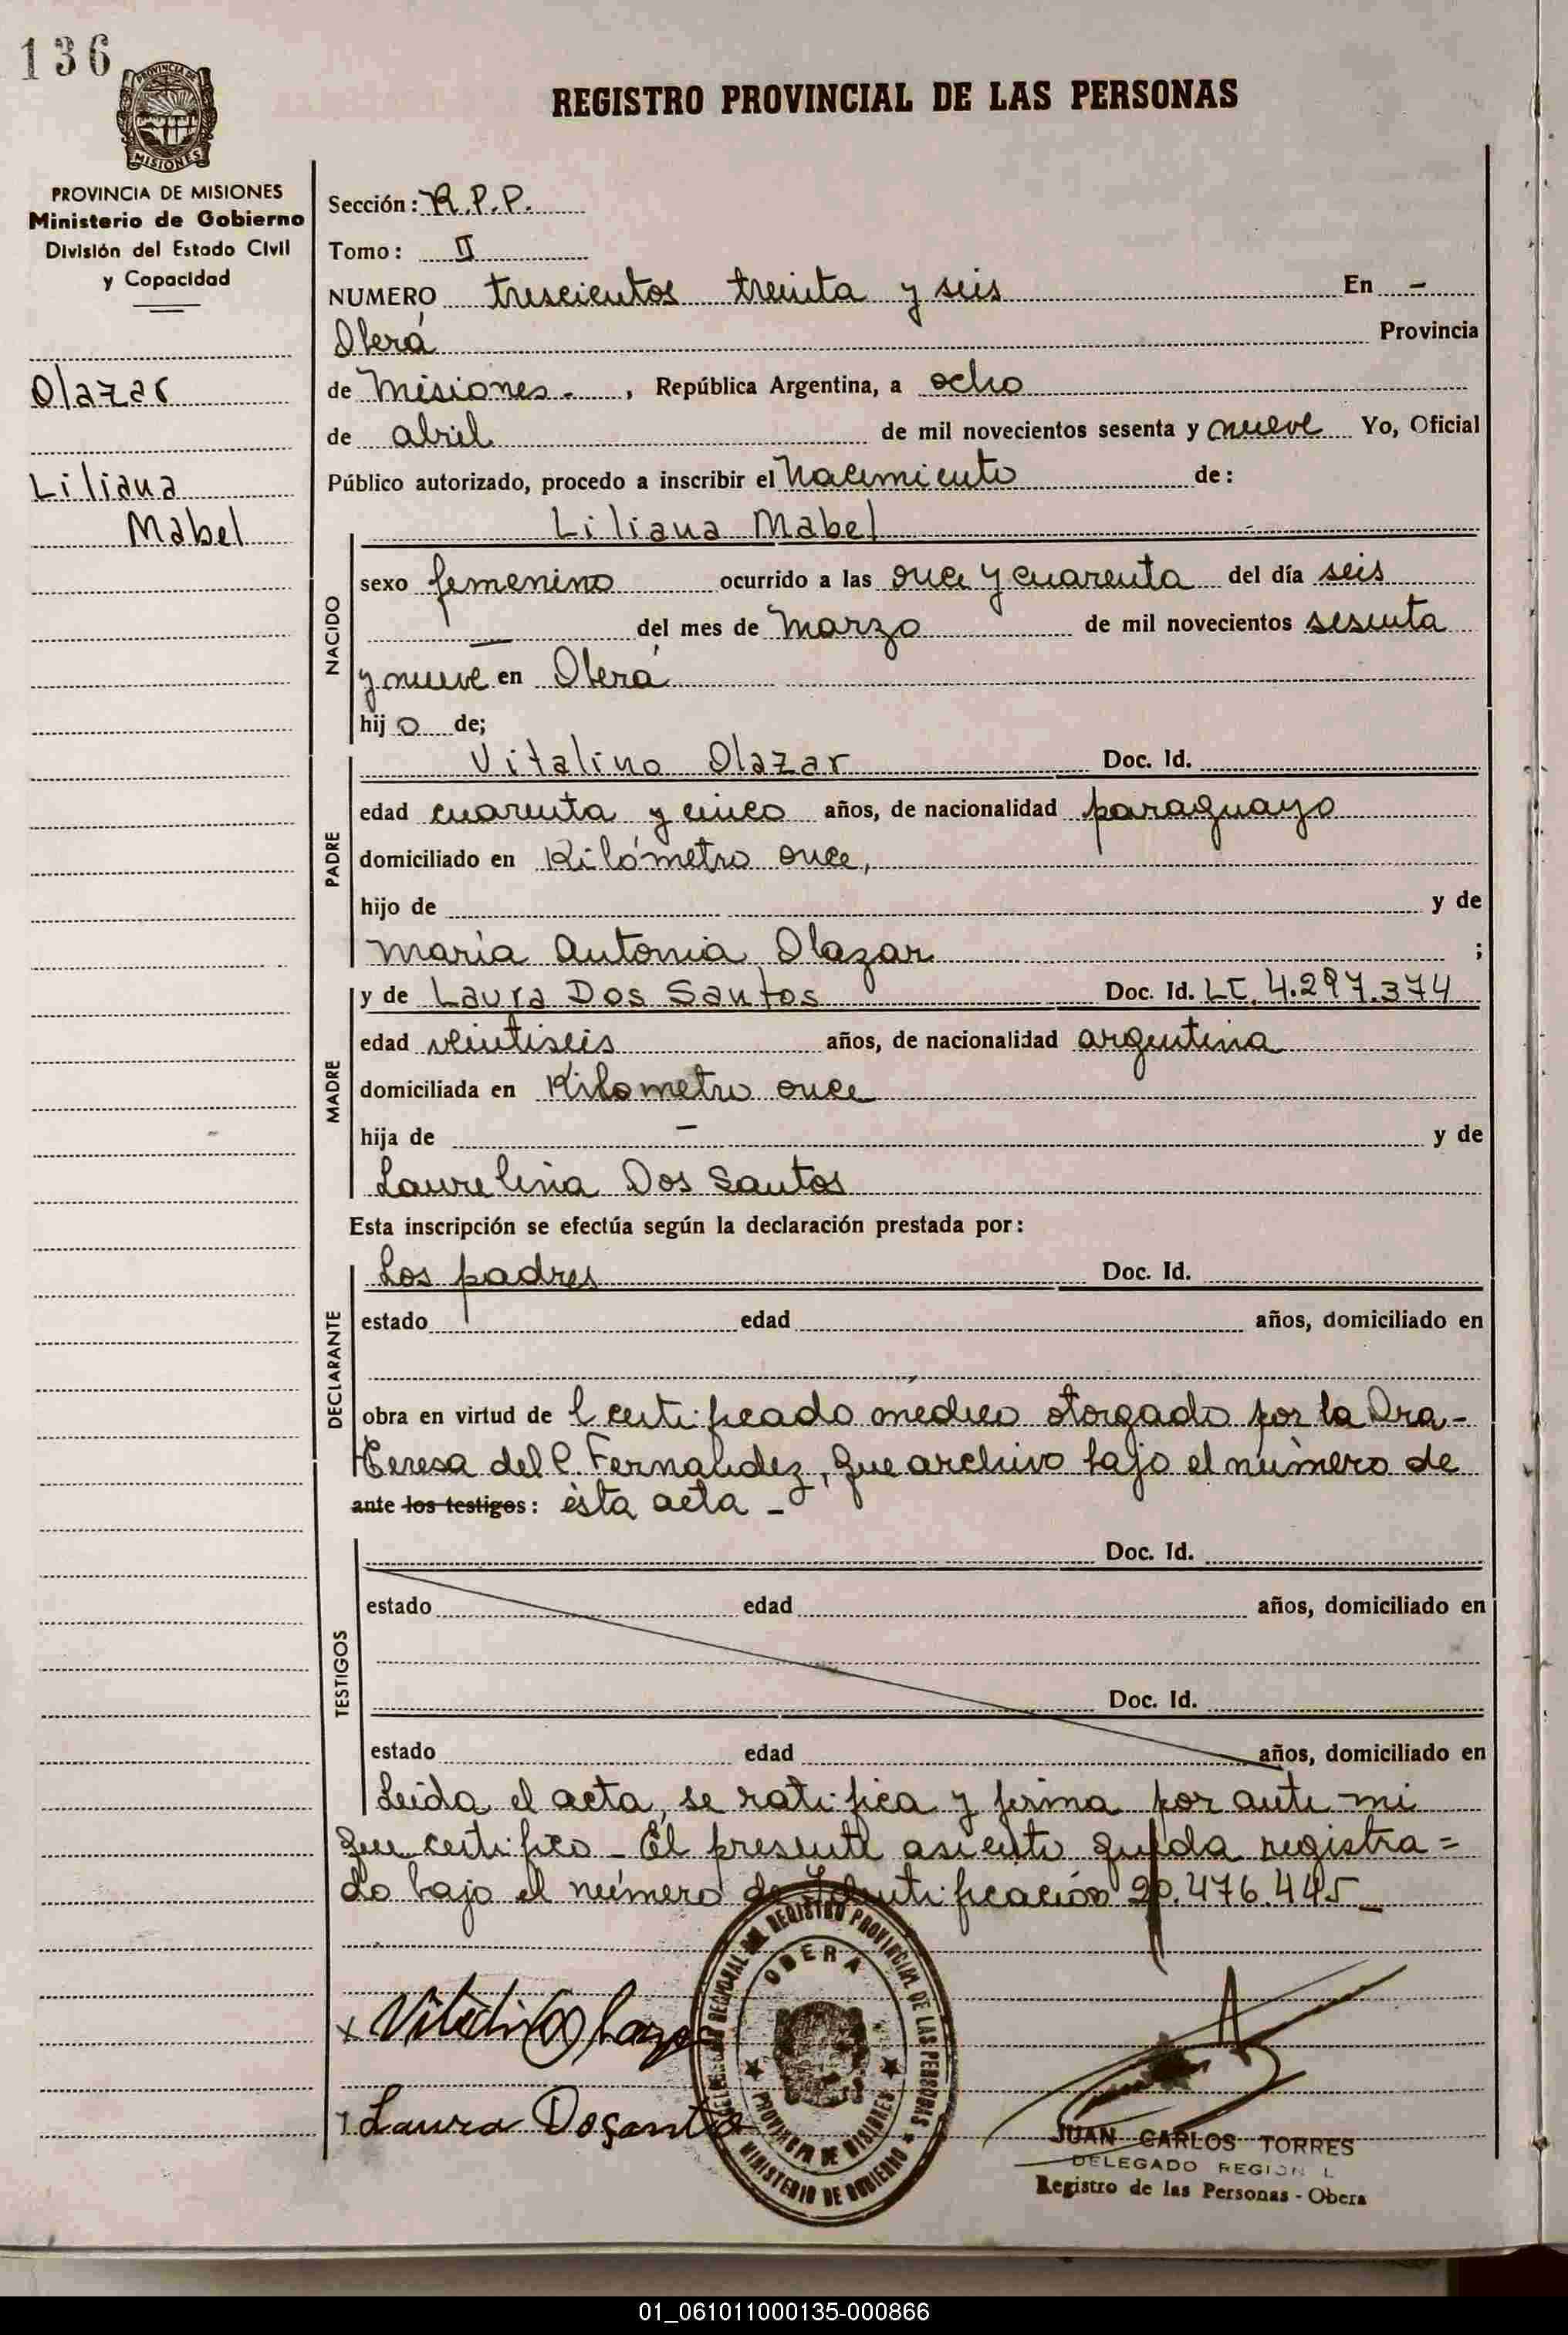 136
PROVINCIA DE
MISIONES
REGISTRO PROVINCIAL DE LAS PERSONAS
PROVINCIA DE MISIONES
Ministerio de Gobierno
División del Estado Civil
y Capacidad
Olazar
Liliana
Mabel
Sección: R.P.P.
Tomo: II
NUMERO trescientos treinta y seis En -
Oberá Provincia
de Misiones - , República Argentina, a ocho
de abril de mil novecientos sesenta y nueve Yo, Oficial
Público autorizado, procedo a inscribir el Nacimiento de:
Liliana Mabel
NACIDO
sexo femenino ocurrido a las once y cuarenta del día seis
— del mes de Marzo de mil novecientos sesenta
y nueve en Oberá
hij o de;
PADRE
Vitalino Olazar Doc. Id.
edad cuarenta y cinco años, de nacionalidad paraguayo
domiciliado en Kilómetro once,
hijo de y de
María Antonia Olazar ;
MADRE
y de Laura Dos Santos Doc. Id. LC. 4.297.374
edad veintiseis años, de nacionalidad argentina
domiciliada en Kilometro once
hija de — y de
Laurelina Dos Santos
Esta inscripción se efectúa según la declaración prestada por:
DECLARANTE
Los padres Doc. Id.
estado edad años, domiciliado en
obra en virtud de l certificado médico otorgado por la Dra-
Teresa del C. Fernandez, que archivo bajo el número de
ante los testigos: ésta acta -
TESTIGOS
Doc. Id.
estado edad años, domiciliado en
Doc. Id.
estado edad años, domiciliado en
Leída el acta, se ratifica y firma por ante mi
que certifico - El presente asiento queda registra=
do bajo el número de Identificación 20.476.445 -
x Vitalino Olazar
Laura Dosanto
DELEGACION REGIONAL DEL REGISTRO PROVINCIAL DE LAS PERSONAS
OBERA
PROVINCIA DE MISIONES
MINISTERIO DE GOBIERNO
JUAN CARLOS TORRES
DELEGADO REGION L
Registro de las Personas - Obera
01_061011000135-000866